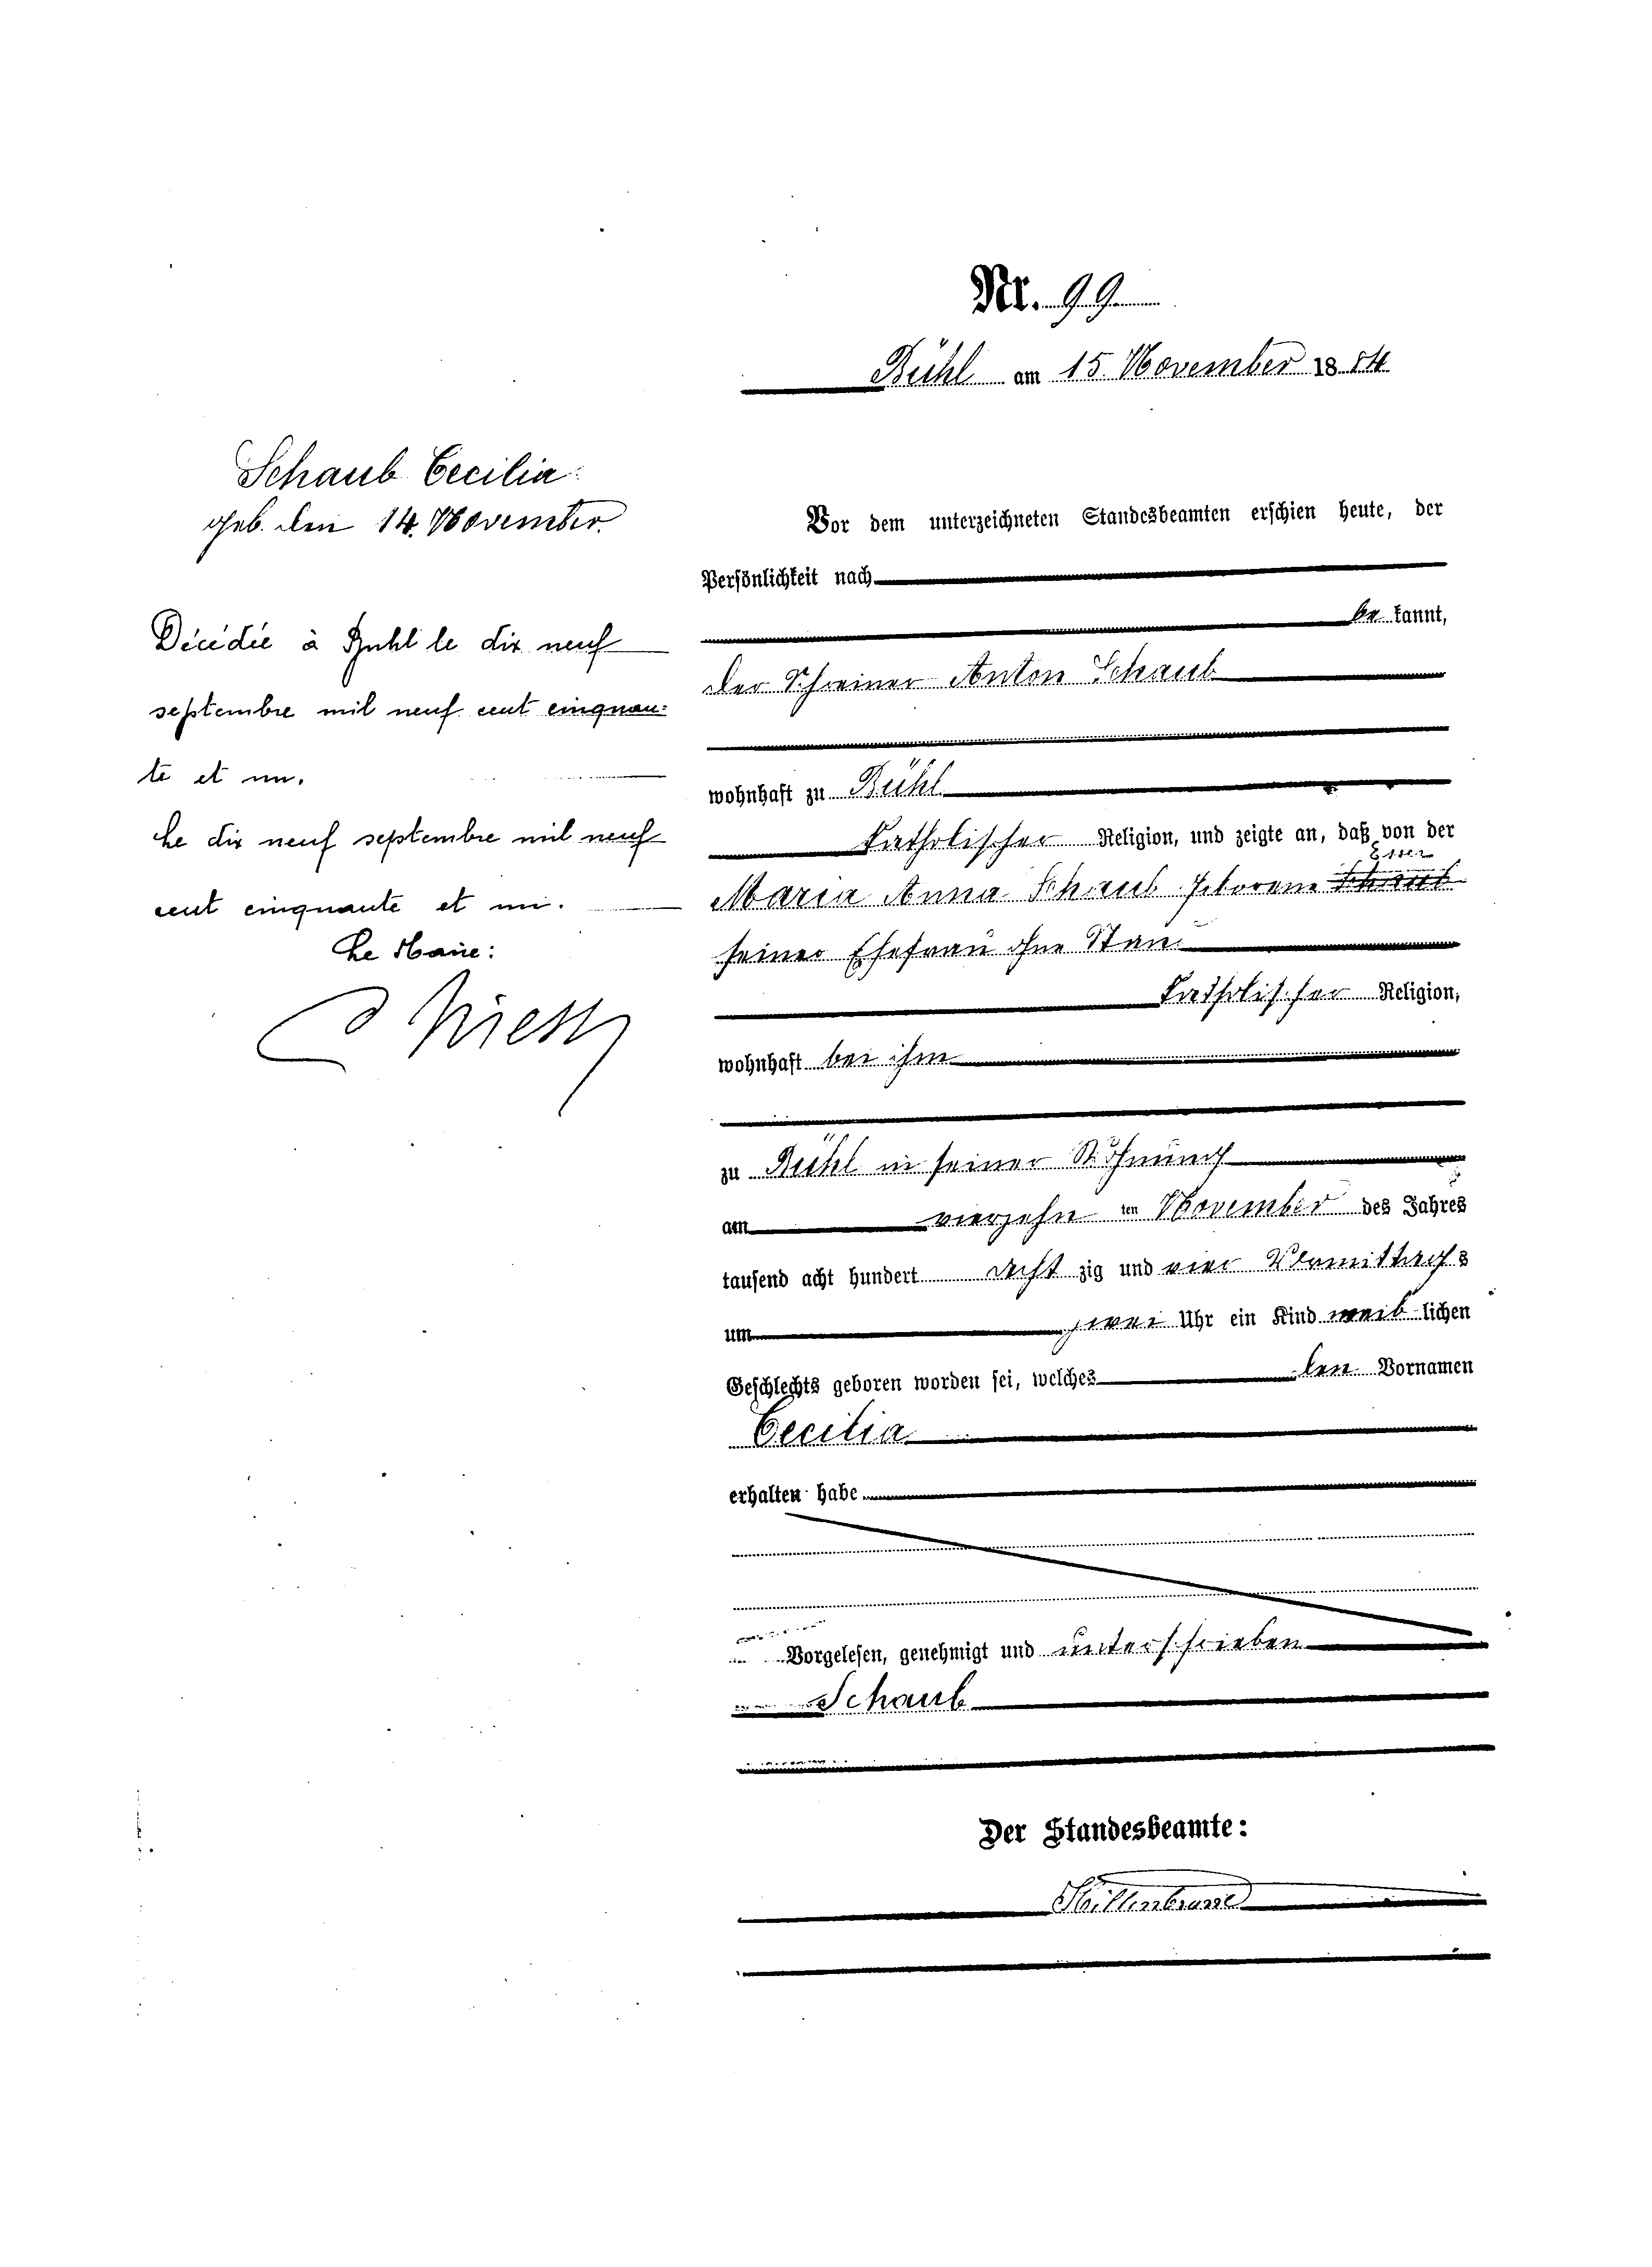 Nr. 99
Bühl am 15. November 1884
Schaub Cecilia
geb. den 14. November.
Décédée à Buhl le dix neuf
septembre mil neuf cent cinquan-
te et un.
Le dix neuf septembre mil neuf
cent cinquante et un.
Le Maire:
Vor dem unterzeichneten Standesbeamten erschien heute, der
Persönlichkeit nach
be kannt,
der Schreiner Anton Schaub
wohnhaft zu Bühl
katholischer Religion, und zeigte an, daß von der
Esser
Maria Anna Schaub geborene Schaub
seiner Ehefrau ohne Stand
katholischer Religion,
wohnhaft bei ihm
zu Bühl in seiner Wohnung
am vierzehn ten November des Jahres
tausend acht hundert acht zig und vier Vormittags
um zwei Uhr ein Kind weib lichen
Geschlechts geboren worden sei, welches den Vornamen
Cecilia
erhalten habe
Vorgelesen, genehmigt und unterschrieben
Schaub
Der Standesbeamte:
Hillenbrand